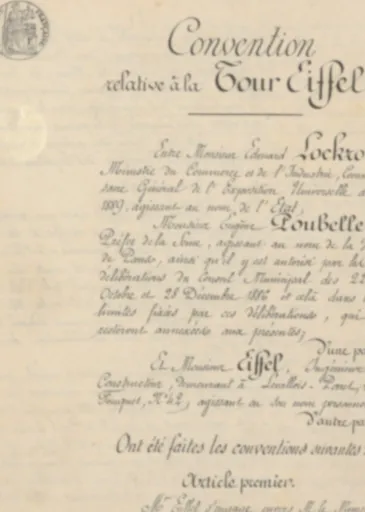 Convention
relative à la Tour Eiffel
Entre Monsieur Edouard Lockro
Ministre du Commerce et de l'Industrie, Com
saire Général de l'Exposition Universelle d
1889, agissant au nom de l'Etat,
Monsieur Eugène Poubelle
Préfet de la Seine, agissant au nom de la V
de Paris, ainsi qu'il y est autorisé par les
délibérations du Conseil Municipal des 22
Octobre et 28 Décembre 1886 et cela dans l
limites fixées par ces délibérations, qui
resteront annexées aux présentes;
D'une pa
Et Monsieur Eiffel, Ingénieur
Constructeur, demeurant à Levallois-Perret, r
Fouquet, N°42, agissant en son nom personn
D'autre pa
Ont été faites les conventions suivantes:
Article premier.
Mr Eiffel s'engage envers M. le Minis